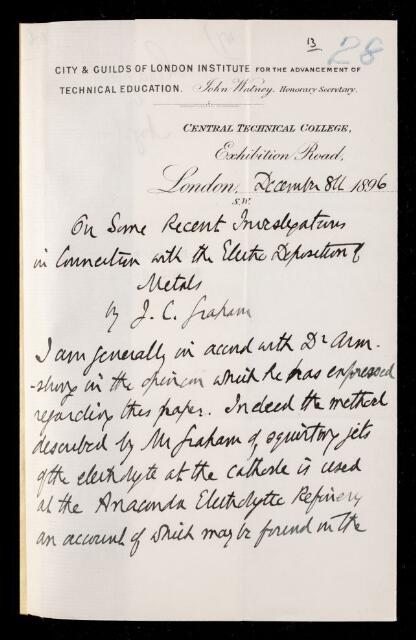 13
28
CITY & GUILDS OF LONDON INSTITUTE FOR THE ADVANCEMENT OF
TECHNICAL EDUCATION. John Watney, Honorary Secretary.
CENTRAL TECHNICAL COLLEGE,
Exhibition Road,
London, December 8th 1896
S.W.
On Some Recent Investigations
in Connection with the Electro Deposition of
Metals
by J. C. Graham
I am generally in accord with Dr Arm-
-strong in the opinion which he has expressed
regarding this paper. Indeed the method
described by Mr Graham of squirting jets
of the electrolyte at the cathode is used
at the Anaconda Electrolytic Refinery
an account of which may be found in the